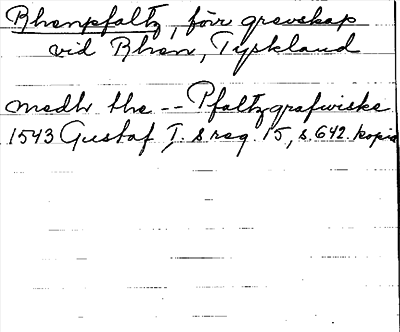 Rhenpfaltz, förr grevskap
vid Rhen, Tyskland
medh the -- Pfaltzgrafwiske
1543 Gustaf I:s reg. 15, s. 642. kopia